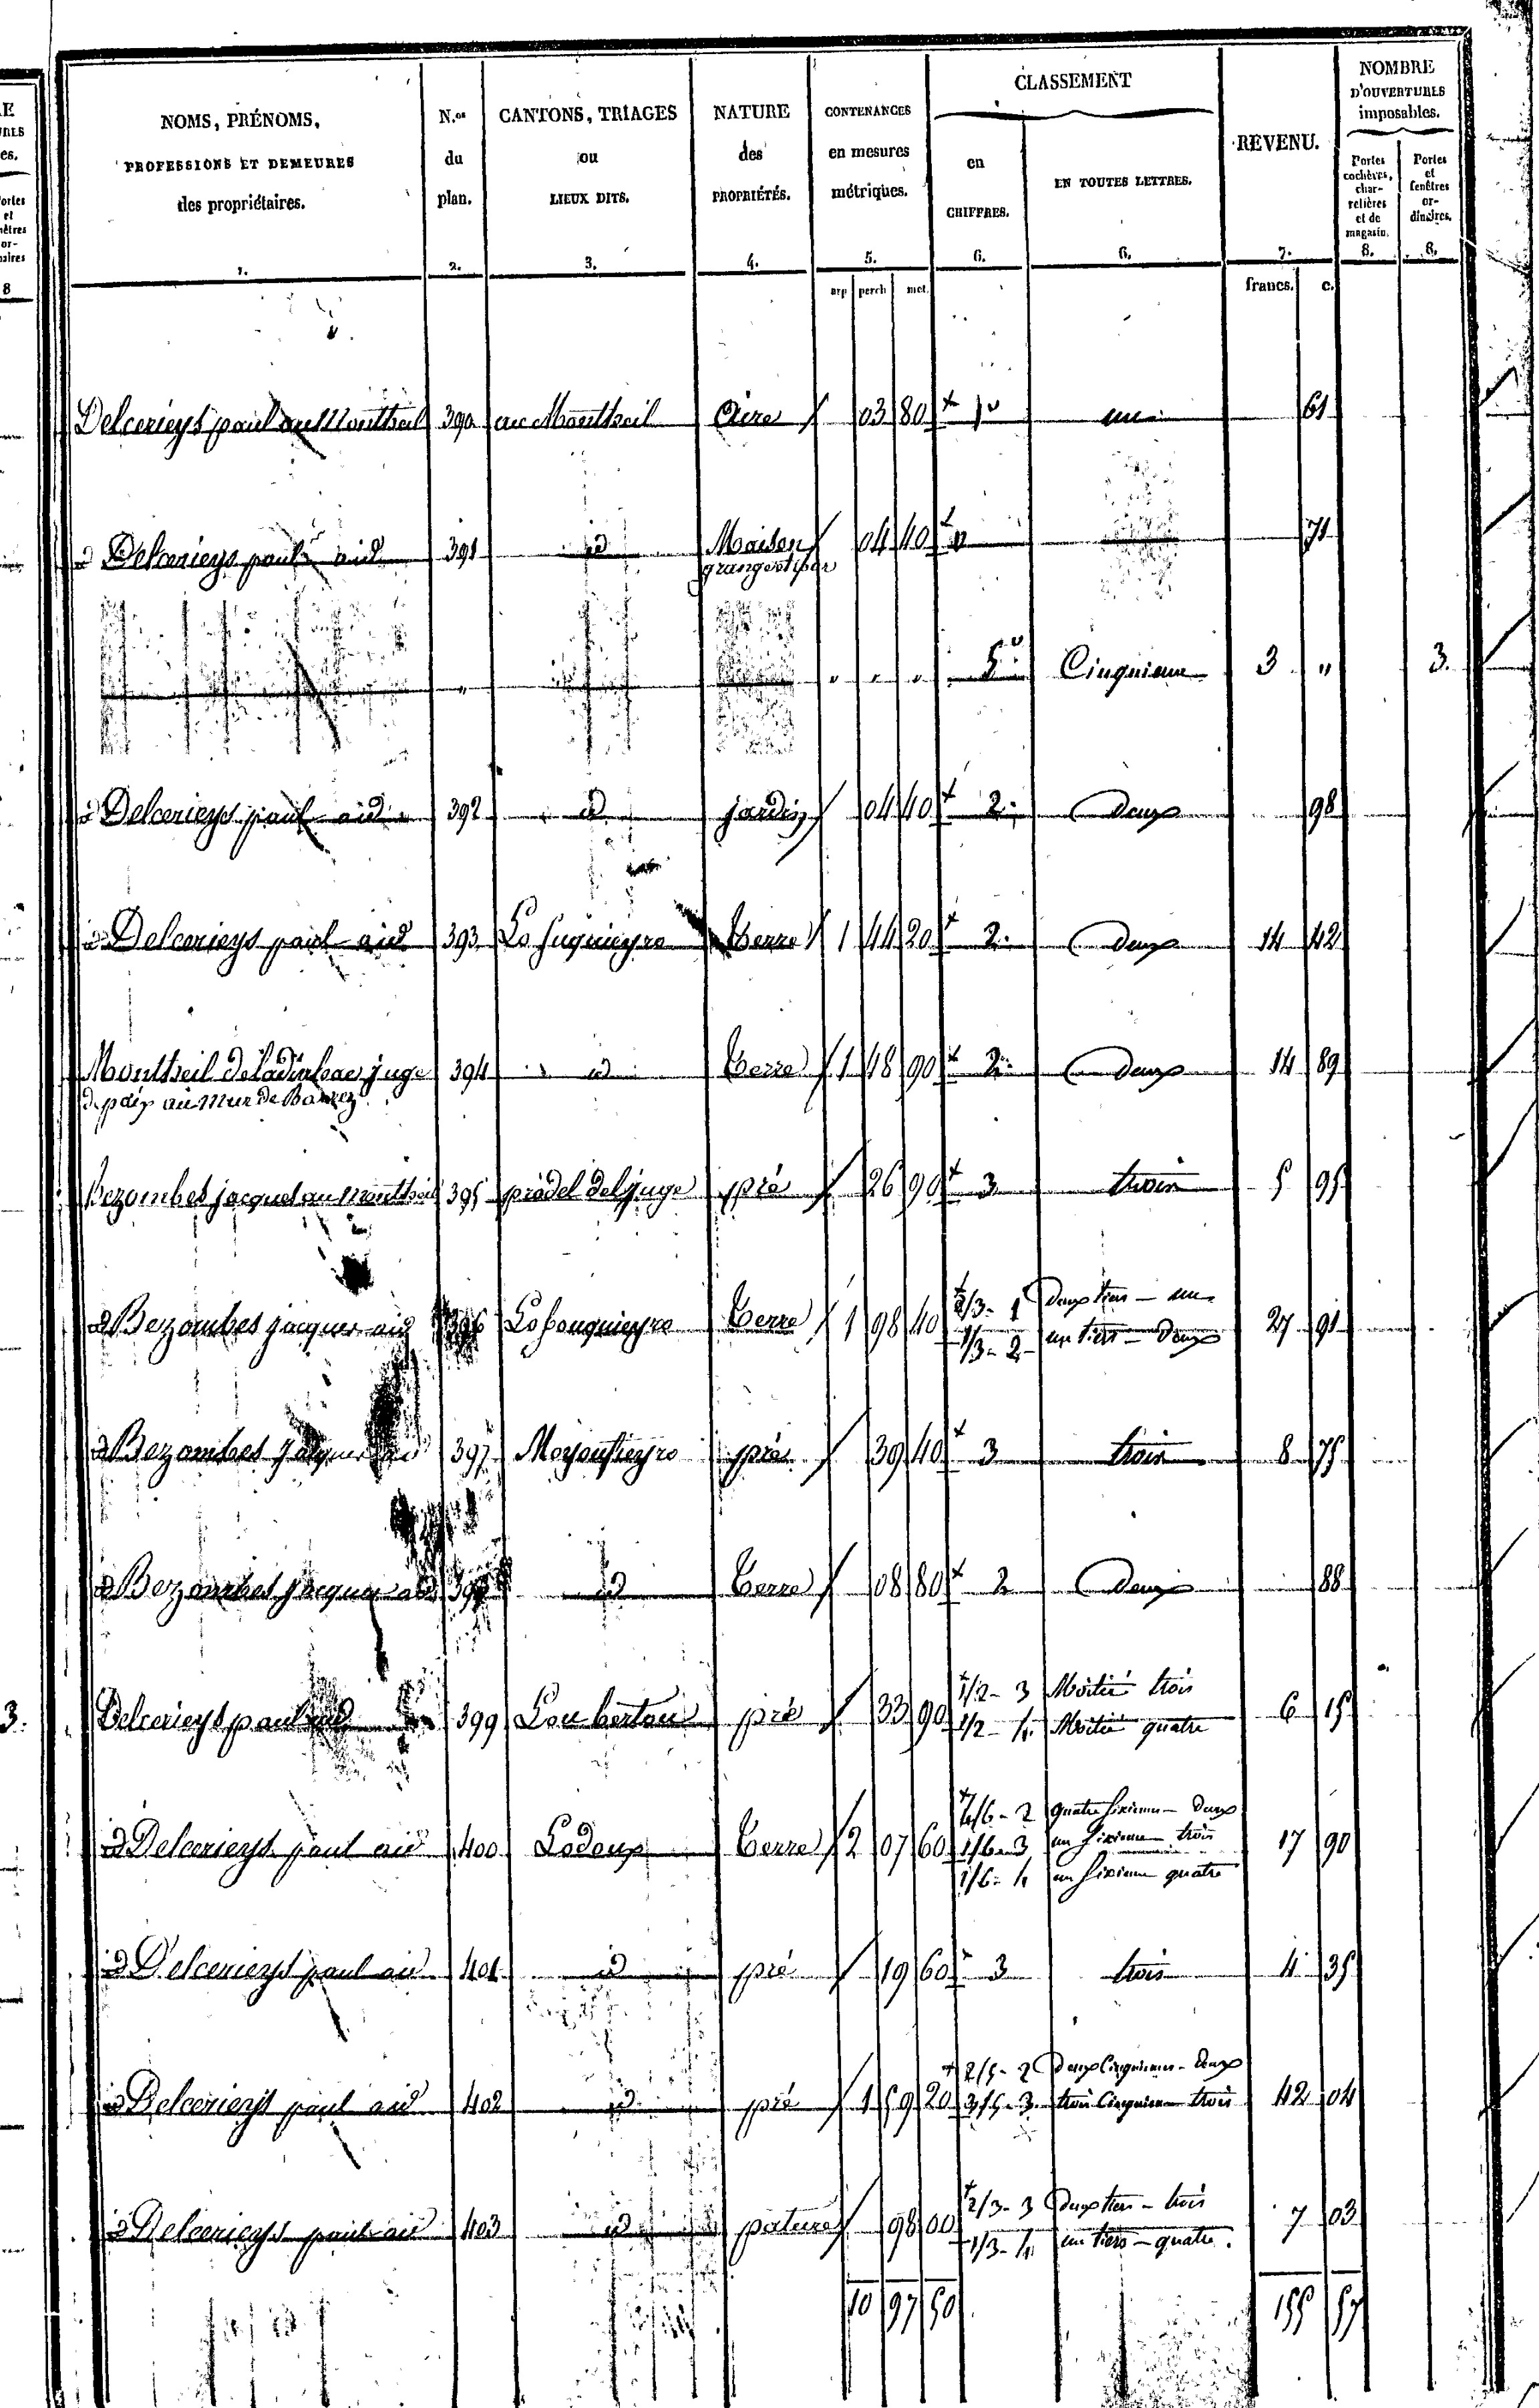 NOMS, PRÉNOMS, PROFESSIONS ET DEMEURES des propriétaires. 1.
N.os du plan. 2.
CANTONS, TRIAGES ou LIEUX DITS. 3.
NATURE des PROPRIÉTÉS. 4.
CONTENANCES en mesures métriques. 5.
CLASSEMENT
en CHIFFRES. 6.
EN TOUTES LETTRES. 6.
REVENU. 7.
NOMBRE D'OUVERTURES imposables.
Portes cochères, charretières et de magasin. 8.
Portes et fenêtres ordinaires. 8.
arp perch met. francs. c.
Delcerieys paul au Montheil 390 au Montheil Aire 03 80 1 un 61
id Delcerieys paul aid 391 id Maison 04 40 " 71
grange
" " " " 5e Cinquieme 3 " 3.
id Delcerieys paul aid 392 id jardin 04 40 2. deux 98
id Delcerieys paul aid 393 terre 1 44 20 2. deux 14 42
Montheil juge 394 id terre 1 48 90 2. deux 14 89
de paix au Mur de Barrez
Bezombes jacques au Montheil 395 pradel del juge pré 26 90 3 trois 5 95
id Bezombes jacques aid 396 terre 1 98 40 2/3 - 1 Deux tiers - un 27 91
1/3 - 2 un tiers - Deux
id Bezombes jacques aid 397 pré 39 40 3 trois 8 75
id Bezombes jacques aid 398 id terre 08 80 2 deux 88
Delcerieys paul aid 399 Lou bertou pré 33 90 1/2 - 3 Moitié trois 6 15
1/2 - 4 Moitié quatre
id Delcerieys paul aid 400 Ladoux terre 2 07 60 4/6 - 2 quatre Sixieme - Deux 17 90
1/6 - 3 un Sixieme trois
1/6 - 4 un Sixieme quatre
id Delcerieys paul aid 401 id pré 19 60 3 trois 4 35
id Delcerieys paul aid 402 id pré 1 59 20 2/5 - 2 Deux Cinquieme - Deux 42 04
3/5 - 3. trois Cinquieme trois
id Delcerieys paul aid 403 id pature 98 00 2/3 - 3 Deux tiers - trois 7 03
1/3 - 4 un tiers - quatre.
10 97 50 155 57